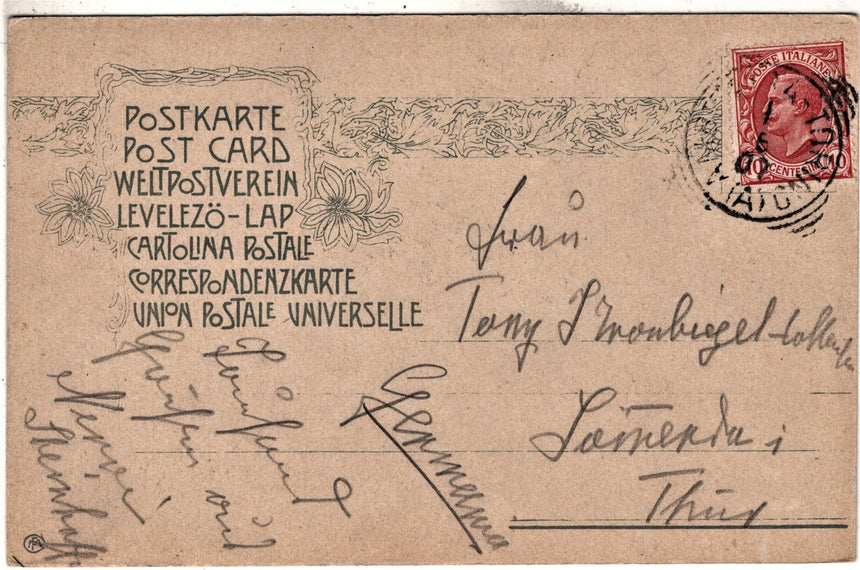 POSTKARTE
POST CARD
WELTPOSTVEREIN
LEVELEZÖ-LAP
CARTOLINA POSTALE
CORRESPONDENZKARTE
UNION POSTALE UNIVERSELLE
POSTE ITALIANE
10 CENTESIMI 10
Frau
Tony
Sömerda i
Thür
Germania
Tausend
Grüße aus
Nervi